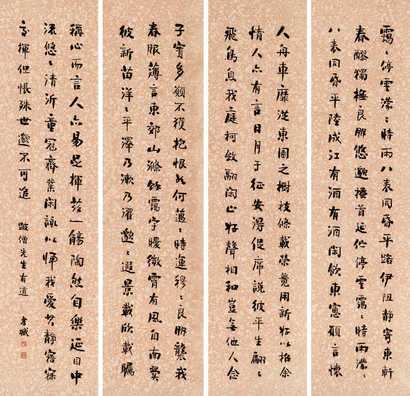 靄〻停雲濛〻時雨八表同昏平路伊阻靜寄東軒
春醪獨撫良朋悠邈搔首延佇停雲靄〻時雨濛〻
八表同昏平陸成江有酒有酒閒飲東窗願言懷
人舟車靡從東園之樹枝條載榮競用新好以招余
情人亦有言日月于征安得促席說彼平生翩〻
飛鳥息我庭柯斂翮閒止好聲相和豈無他人念
子寔多願不獲抱恨如何邁〻時運穆〻良朝襲我
春服薄言東郊山滌餘靄宇曖微霄有風自南翼
彼新苗洋〻平澤乃漱乃濯邈〻遐景載欣載矚
稱心而言人亦易足揮茲一觴陶然自樂延目中
流悠〻清沂童冠齊業閒詠以歸我愛其靜寤寐
交揮但恨殊世邈不可追 僧先生有道 孝臧